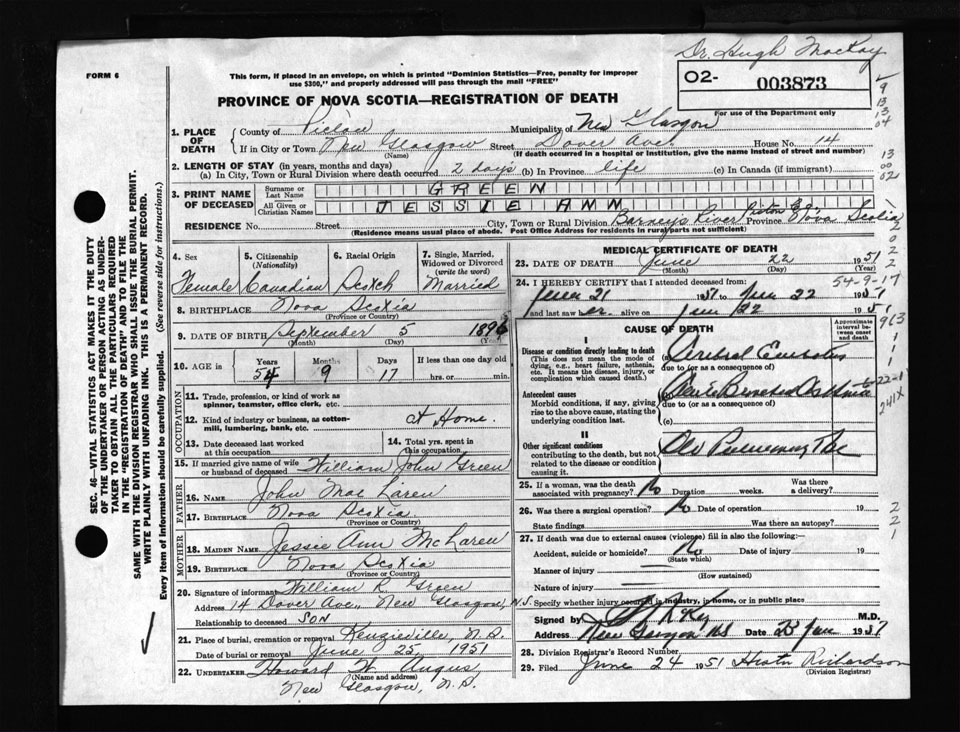 Dr. Hugh MacKay
FORM 6
This form, if placed in an envelope, on which is printed "Dominion Statistics—Free, penalty for improper
use $300," and properly addressed will pass through the mail "FREE"
02- 003873
For use of the Department only
PROVINCE OF NOVA SCOTIA—REGISTRATION OF DEATH
1. PLACE OF DEATH County of Pictou Municipality of New Glasgow
If in City or Town New Glasgow Street Dover Ave House No. 14
(Name) (If death occurred in a hospital or institution, give the name instead of street and number)
2. LENGTH OF STAY (in years, months and days)
(a) In City, Town or Rural Division where death occurred 2 days (b) In Province life (c) In Canada (if immigrant)
3. PRINT NAME OF DECEASED Surname or Last Name GREEN
All Given or Christian Names JESSIE ANN
RESIDENCE No. Street City, Town or Rural Division Barney's River Pictou Co. Province Nova Scotia
(Residence means usual place of abode. Post Office Address for residents in rural parts not sufficient)
4. Sex Female
5. Citizenship (Nationality) Canadian
6. Racial Origin Scotch
7. Single, Married, Widowed or Divorced (write the word) Married
8. BIRTHPLACE Nova Scotia
(Province or Country)
9. DATE OF BIRTH September 5 189
(Month) (Day) (Year)
10. AGE in Years 54 Months 9 Days 17 If less than one day old hrs. or min.
OCCUPATION
11. Trade, profession, or kind of work as spinner, teamster, office clerk, etc.
12. Kind of industry or business, as cotton-mill, lumbering, bank, etc. At Home.
13. Date deceased last worked at this occupation
14. Total yrs. spent in this occupation
15. If married give name of wife or husband of deceased William John Green
FATHER
16. Name John MacLaren
17. BIRTHPLACE Nova Scotia
(Province or Country)
MOTHER
18. MAIDEN NAME Jessie Ann McLaren
19. BIRTHPLACE Nova Scotia
(Province or Country)
20. Signature of informant William R. Green
Address 14 Dover Ave., New Glasgow, N.S.
Relationship to deceased SON
21. Place of burial, cremation or removal Kenzieville, N.S.
Date of burial or removal June 25, 1951
22. UNDERTAKER Howard W. Angus
(Name and address)
New Glasgow, N.S.
MEDICAL CERTIFICATE OF DEATH
23. DATE OF DEATH June 22 1951
(Month) (Day) (Year)
24. I HEREBY CERTIFY that I attended deceased from: 54-9-17
June 21 1951 to June 22 1951
and last saw her alive on June 22 1951
CAUSE OF DEATH
Approximate interval between onset and death
I
Disease or condition directly leading to death
(This does not mean the mode of dying, e.g., heart failure, asthenia, etc. It means the disease, injury, or complication which caused death.)
(a) Cerebral Embolus
due to (or as a consequence of)
Antecedent causes
Morbid conditions, if any, giving rise to the above cause, stating the underlying condition last.
(b) Bronchial Asthma
due to (or as a consequence of)
(c)
II
Other significant conditions
contributing to the death, but not related to the disease or condition causing it.
Old Pulmonary Tbc
25. If a woman, was the death associated with pregnancy? No Duration weeks. Was there a delivery?
26. Was there a surgical operation? No Date of operation 19
State findings Was there an autopsy?
27. If death was due to external causes (violence) fill in also the following:—
Accident, suicide or homicide? No Date of injury 19
(State which)
Manner of injury
(How sustained)
Nature of injury
Specify whether injury occurred in industry, in home, or in public place
Signed by M.D.
Address New Glasgow NS Date 23 June 1951
28. Division Registrar's Record Number
29. Filed June 24 1951 Richardson
(Division Registrar)
SEC. 46—VITAL STATISTICS ACT MAKES IT THE DUTY
OF THE UNDERTAKER OR PERSON ACTING AS UNDERTAKER TO OBTAIN ALL THE PARTICULARS REQUIRED
IN THE "REGISTRATION OF DEATH" AND TO FILE THE
SAME WITH THE DIVISION REGISTRAR WHO SHALL ISSUE THE BURIAL PERMIT.
WRITE PLAINLY WITH UNFADING INK. THIS IS A PERMANENT RECORD.
Every item of information should be carefully supplied. (See reverse side for instructions.)
241X